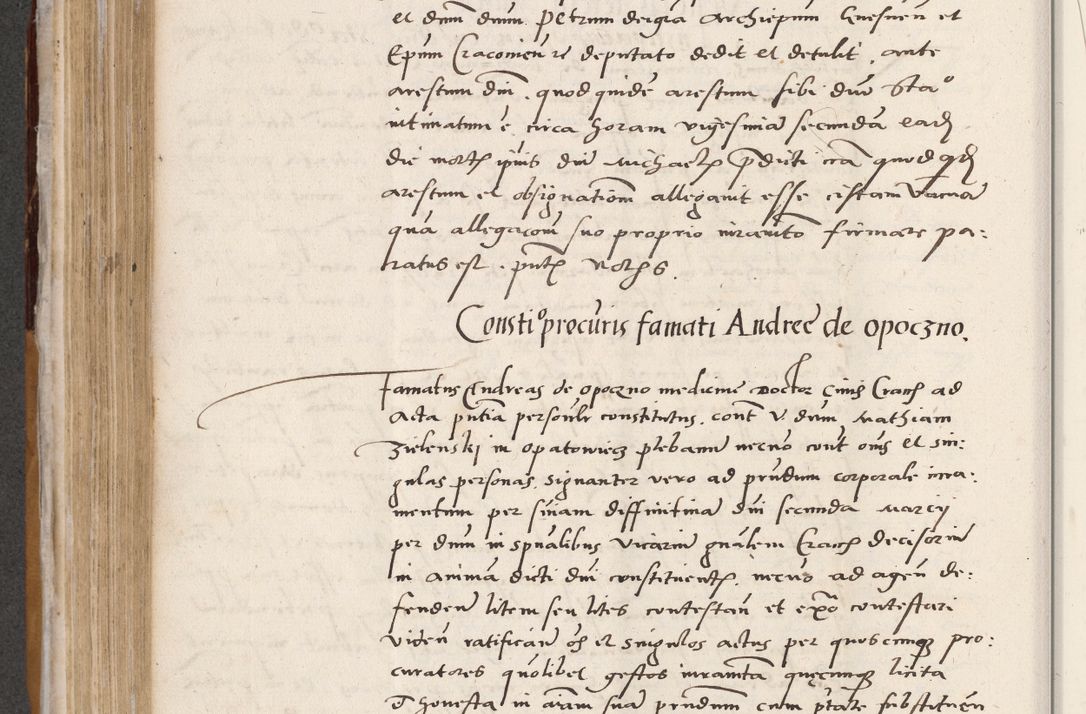 et dnm dnum Petrum dei gra Archiepum Gnesnen et
Epum Craconien re deputato dedit et detulit, ante
arestum dni, quod quidē arestum sibi duo Stao
intimatum ē circa horam vigesimā secundā eadē
die mortē ipius dni Michaelē pdicti
arestum et obsignationem allegavit esse cistam vacuā
quā allegacom suo proprio iuramto firmare pa:
ratus est. pntē
Constio procuris famati Andree de opoczno.
famatus Andreas de opoczno medicine Doctor Civis Cracō ad
Acta pntia personlr constitutus, cont v. dnm Mathiam
Zielenski in opatowiecz plebanū necno cont oēs et sin:
gulas personas, signanter vero ad prndum corporale iura:
mentum per sniam diffinitiva dni secunda Marcij
per dnm in spualibus vicariū gnalem Cracō decisoriū
in animā dicti dni constituentē, necno ad agen de:
fenden litem seu lites contestan et expō contestari
viden ratifican oēs et singulos actus per quoscunqȝ pro:
curatores quolibet gestos iuramta quęcunqȝ licita
et honesta in aiam suā prndum cum ptate substituen